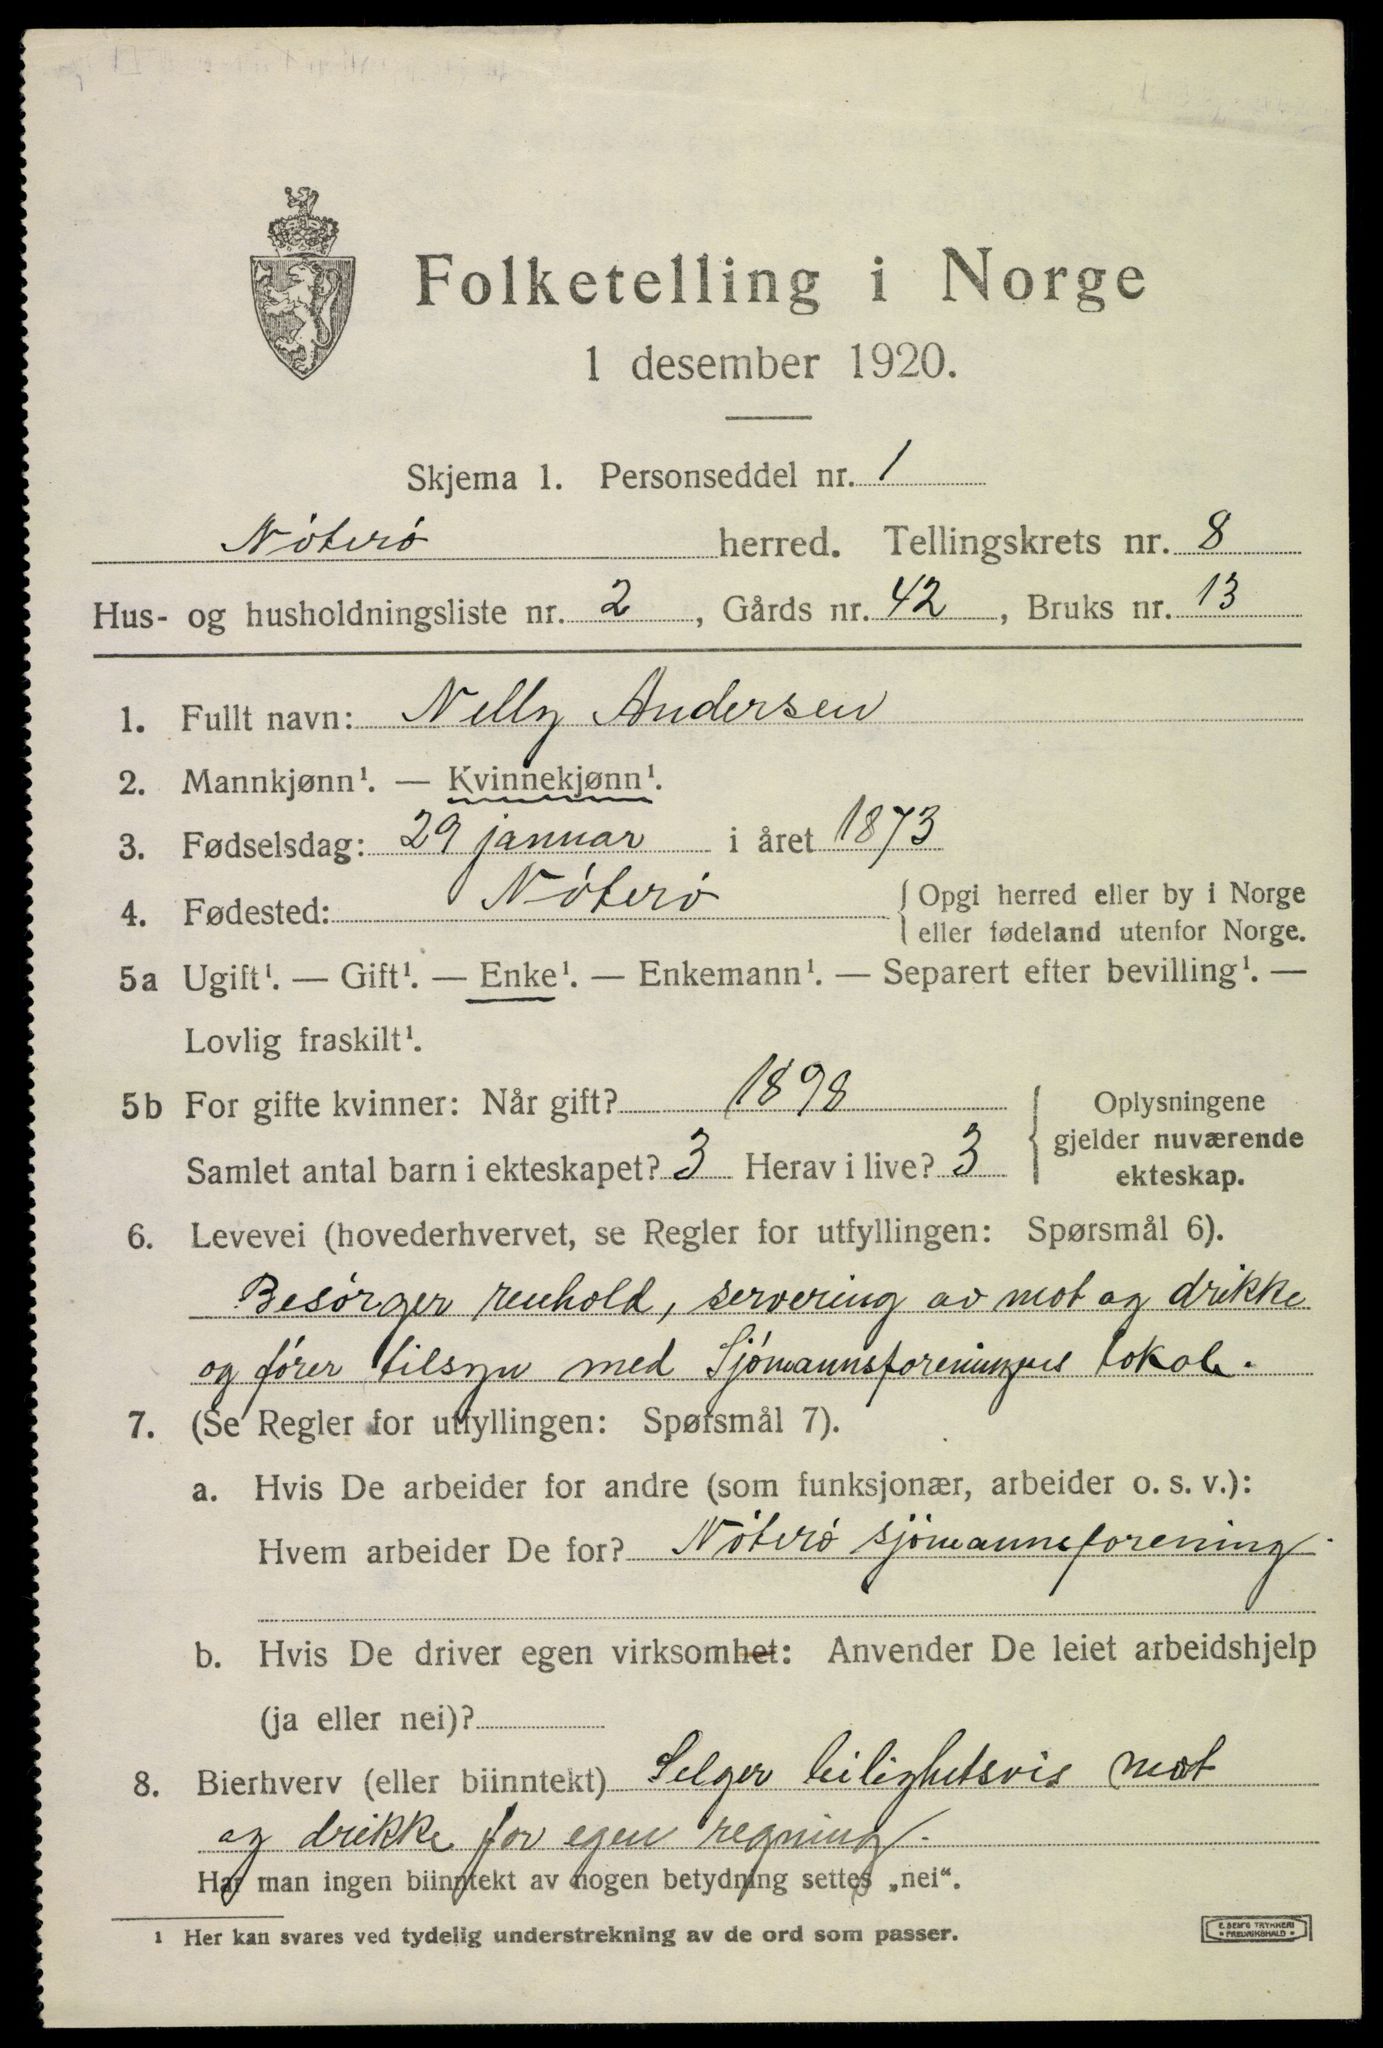 Folketelling i Norge
1 desember 1920.
Skjema 1. Personseddel nr. 1
Nöterö herred. Tellingskrets nr. 8
Hus- og husholdningsliste nr. 2, Gårds nr. 42, Bruks nr. 13
1. Fullt navn: Nelly Andersen
2. Mannkjønn¹. — Kvinnekjønn¹.
3. Fødselsdag: 29 januar i året 1873
4. Fødested: Nöterö { Opgi herred eller by i Norge
eller fødeland utenfor Norge.
5a Ugift¹. — Gift¹. — Enke¹. — Enkemann¹. — Separert efter bevilling¹. —
Lovlig fraskilt¹.
5b For gifte kvinner: Når gift? 1898
Samlet antal barn i ekteskapet? 3 Herav i live? 3
Oplysningene
gjelder nuværende
ekteskap.
6. Levevei (hovederhvervet, se Regler for utfyllingen: Spørsmål 6).
Besörger renhold, servering av mat og drikke
og förer tilsyn med Sjömannsforeningens lokale.
7. (Se Regler for utfyllingen: Spørsmål 7).
a. Hvis De arbeider for andre (som funksjonær, arbeider o. s. v.):
Hvem arbeider De for? Nöterö sjömannsforening.
b. Hvis De driver egen virksomhet: Anvender De leiet arbeidshjelp
(ja eller nei)?
8. Bierhverv (eller biinntekt) Selger leilighetsvis mat
og drikke for egen regning.
Har man ingen biinntekt av nogen betydning settes „nei“.
¹ Her kan svares ved tydelig understrekning av de ord som passer.
E. SEM'S TRYKKERI
FREDRIKSHALD